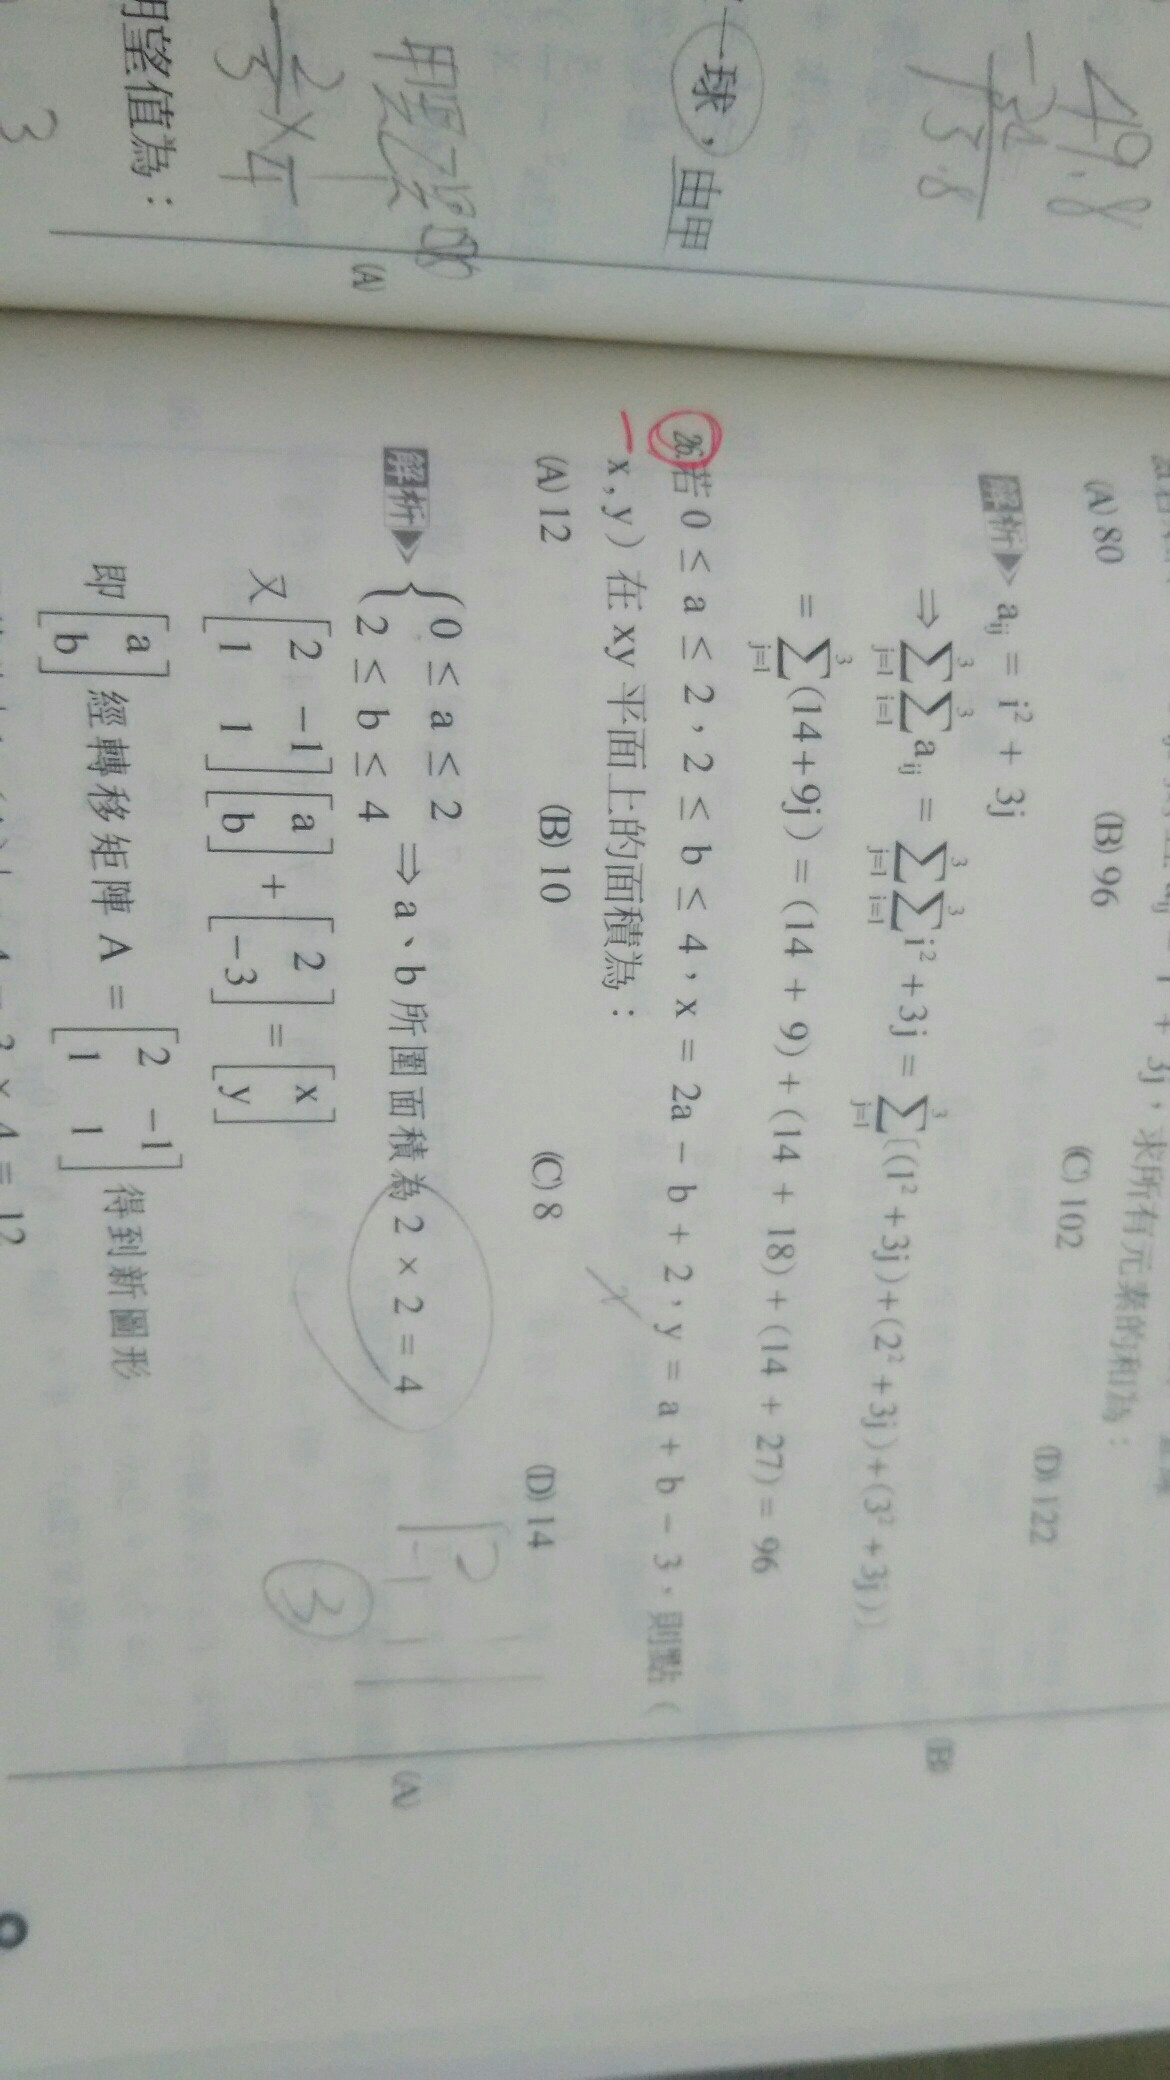 49.8
一球，由甲
期望值為：
(A)
3j，求所有元素的和為：
(A) 80 (B) 96 (C) 102 (D) 122
解析▶ aᵢⱼ = i² + 3j
⇒ ∑ⱼ₌₁³ ∑ᵢ₌₁³ aᵢⱼ = ∑ⱼ₌₁³ ∑ᵢ₌₁³ i² + 3j = ∑ⱼ₌₁³ [(1² + 3j) + (2² + 3j) + (3² + 3j)]
= ∑ⱼ₌₁³ (14 + 9j) = (14 + 9) + (14 + 18) + (14 + 27) = 96
(B)
26. 若 0 ≤ a ≤ 2，2 ≤ b ≤ 4，x = 2a − b + 2，y = a + b − 3，則點（
x , y ）在 xy 平面上的面積為：
(A) 12 (B) 10 (C) 8 (D) 14
(A)
解析▶ { 0 ≤ a ≤ 2
2 ≤ b ≤ 4 ⇒ a、b 所圍面積為 2 × 2 = 4
又 [2 −1; 1 1] [a; b] + [2; −3] = [x; y]
即 [a; b] 經轉移矩陣 A = [2 −1; 1 1] 得到新圖形
3 × 4 = 12
2 1
−1 1
3